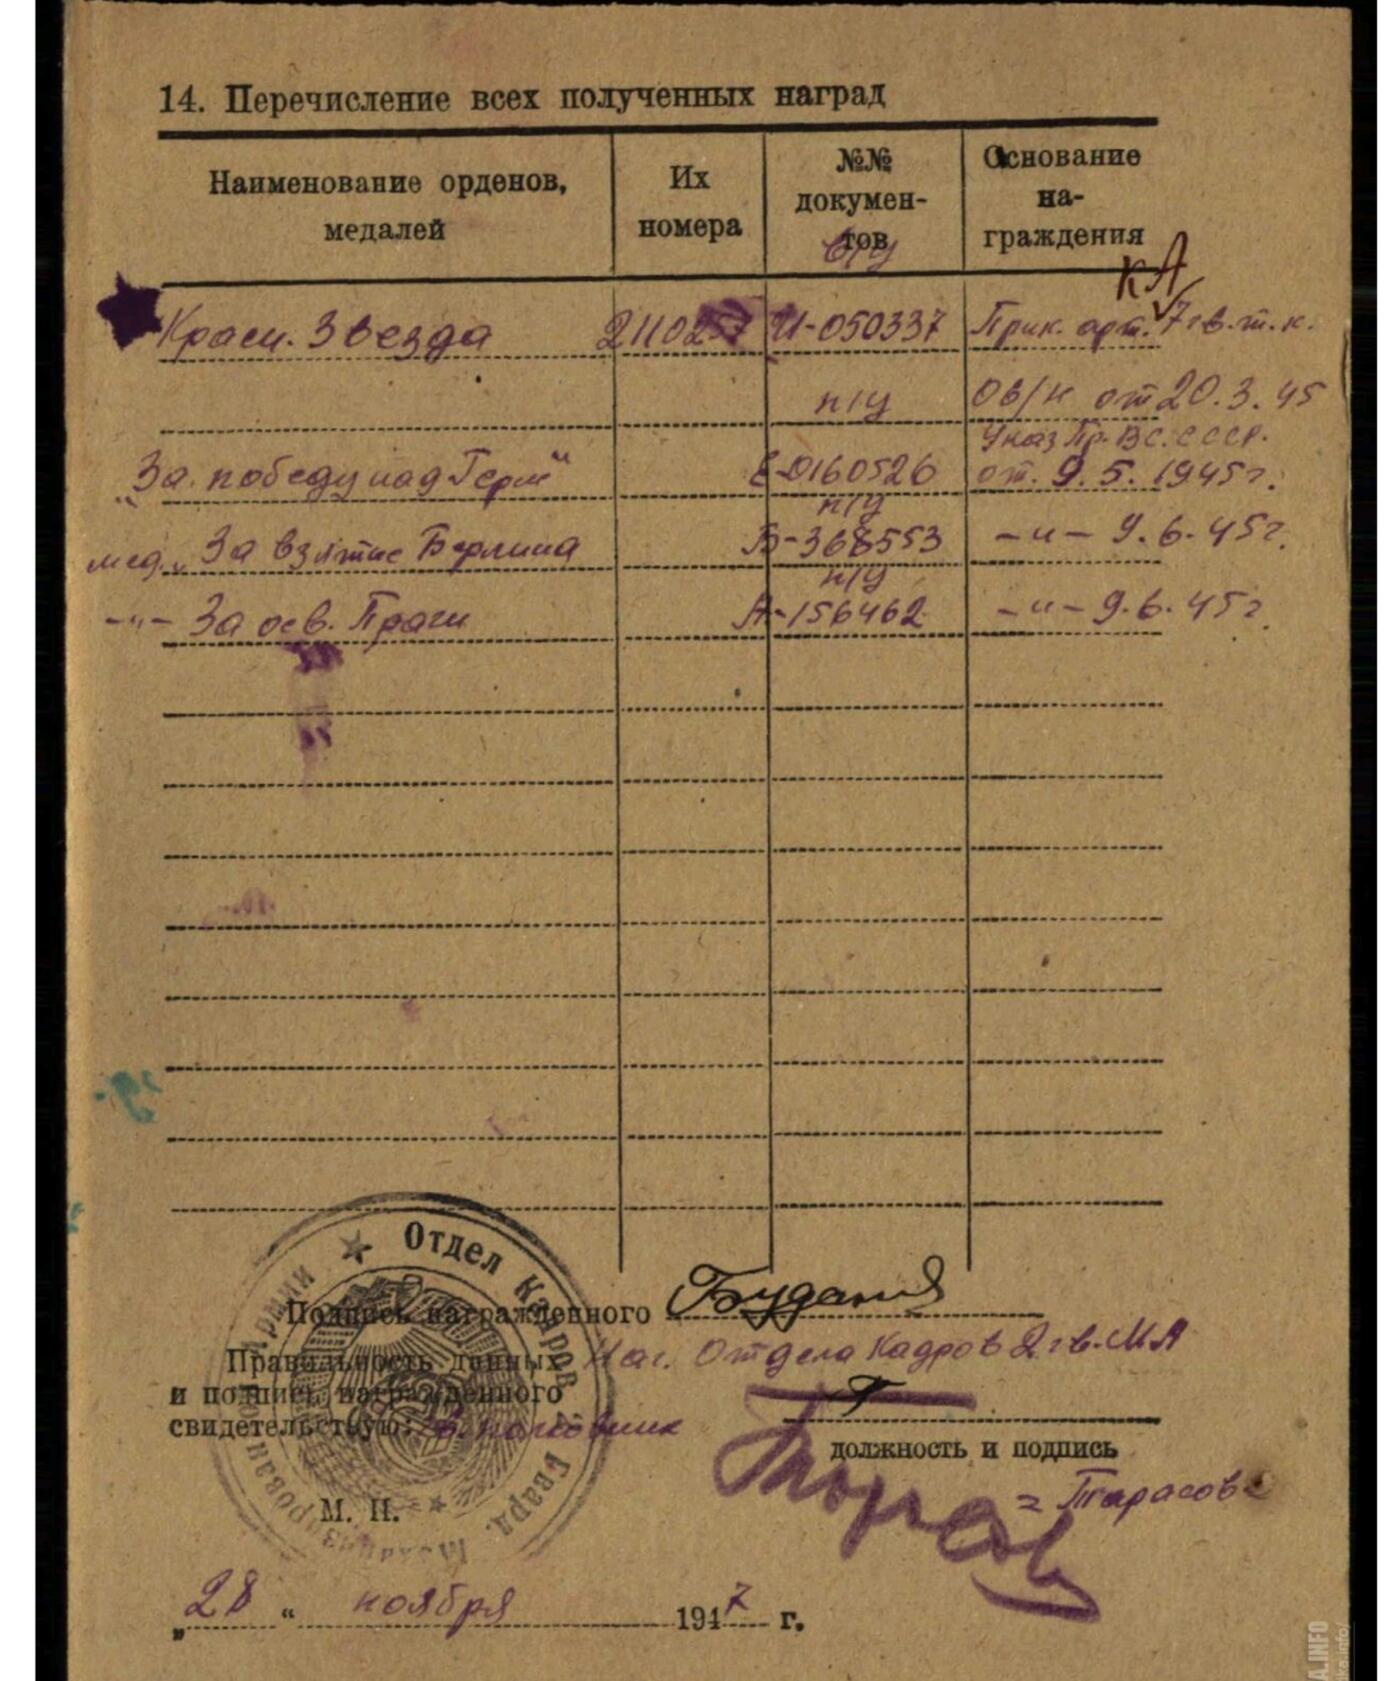 14. Перечисление всех полученных наград
Наименование орденов, медалей
Их номера
№№ докумен-тов
Основание на-граждения
КА
Красн. Звезда 2110257 И-050337 Прик. арт. 7 гв.т.к.
п/у 06/н от 20.3.45
Указ Пр. ВС. СССР.
"За победу над Герм" Е-0160526 от. 9.5.1945г.
п/у
мед. "За взятие Берлина Б-368553 -"- 9.6.45г.
п/у
-"- За осв. Праги А-156462 -"- 9.6.45г.
Отдел Кадров Гвард. Армии
Подпись награжденного
Правильность данных Нач. Отдела Кадров 2 гв. МА
и подпись награжденного
свидетельствую: полковник
должность и подпись
= Тарасов =
М. П.
„28“ ноября 1947 г.
A.INFO